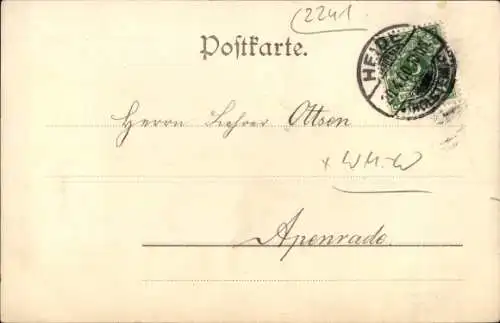 (2241
Postkarte.
HEIDE
HOLSTEIN
Herrn Lehrer Ottsen
x WH-W
Apenrade.